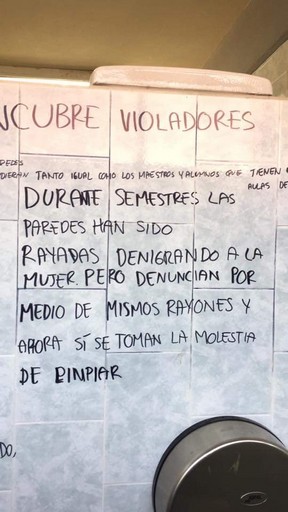 NCUBRE VIOLADORES
PEDES
DIERAN TANTO IGUAL COMO LOS MAESTROS Y ALUMNOS QUE TIENEN
AULAS DE
DURANTE SEMESTRES LAS
PAREDES HAN SIDO
RAYADAS DENIGRANDO A LA
MUJER. PERO DENUNCIAN POR
MEDIO DE MISMOS RAYONES Y
AHORA SÍ SE TOMAN LA MOLESTIA
DE BINPIAR
DO,